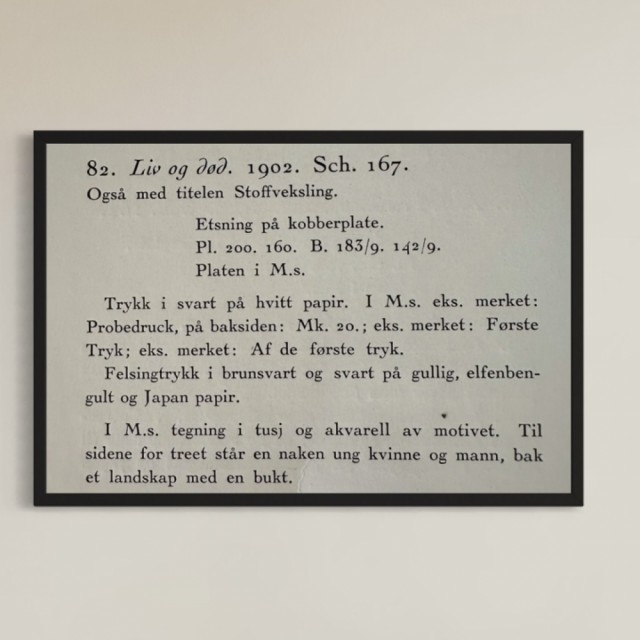 82. Liv og død. 1902. Sch. 167.
Også med titelen Stoffveksling.
Etsning på kobberplate.
Pl. 200. 160. B. 183/9. 142/9.
Platen i M.s.
Trykk i svart på hvitt papir. I M.s. eks. merket:
Probedruck, på baksiden: Mk. 20.; eks. merket: Første
Tryk; eks. merket: Af de første tryk.
Felsingtrykk i brunsvart og svart på gullig, elfenben-
gult og Japan papir.
I M.s. tegning i tusj og akvarell av motivet. Til
sidene for treet står en naken ung kvinne og mann, bak
et landskap med en bukt.